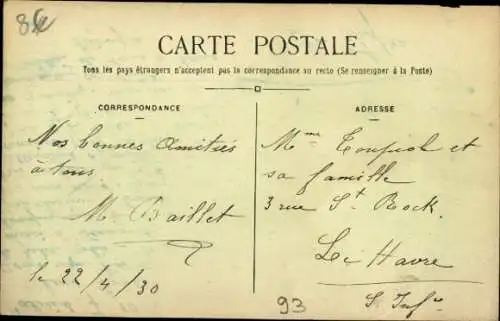 86
CARTE POSTALE
Tous les pays étrangers n'acceptent pas la correspondance au recto (Se renseigner à la Poste)
CORRESPONDANCE
Nos bonnes Amitiés
à tous
M. Baillet
le 22/4/30
ADRESSE
Mme et
sa famille
3 rue St Rock
Le Havre
S. Infre
93